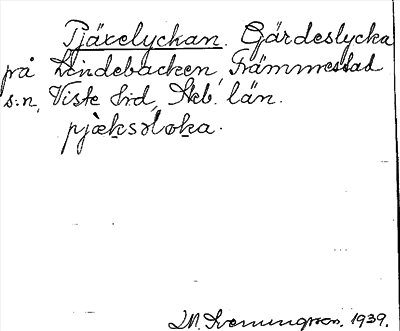 Pjäxelyckan. Gärdeslycka
på Lindebacken, Främmestad
s:n, Viste hd, Skb. län.
pjæksəl​oka.
1939.